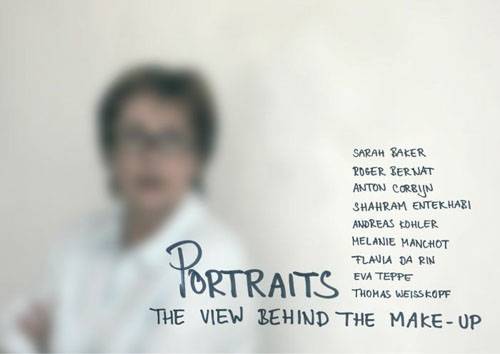 SARAH BAKER
ROGER BERNAT
ANTON CORBIJN
SHAHRAM ENTEKHABI
ANDREAS KOHLER
MELANIE MANCHOT
FLAVIA DA RIN
EVA TEPPE
THOMAS WEISSKOPF
PORTRAITS
THE VIEW BEHIND THE MAKE-UP